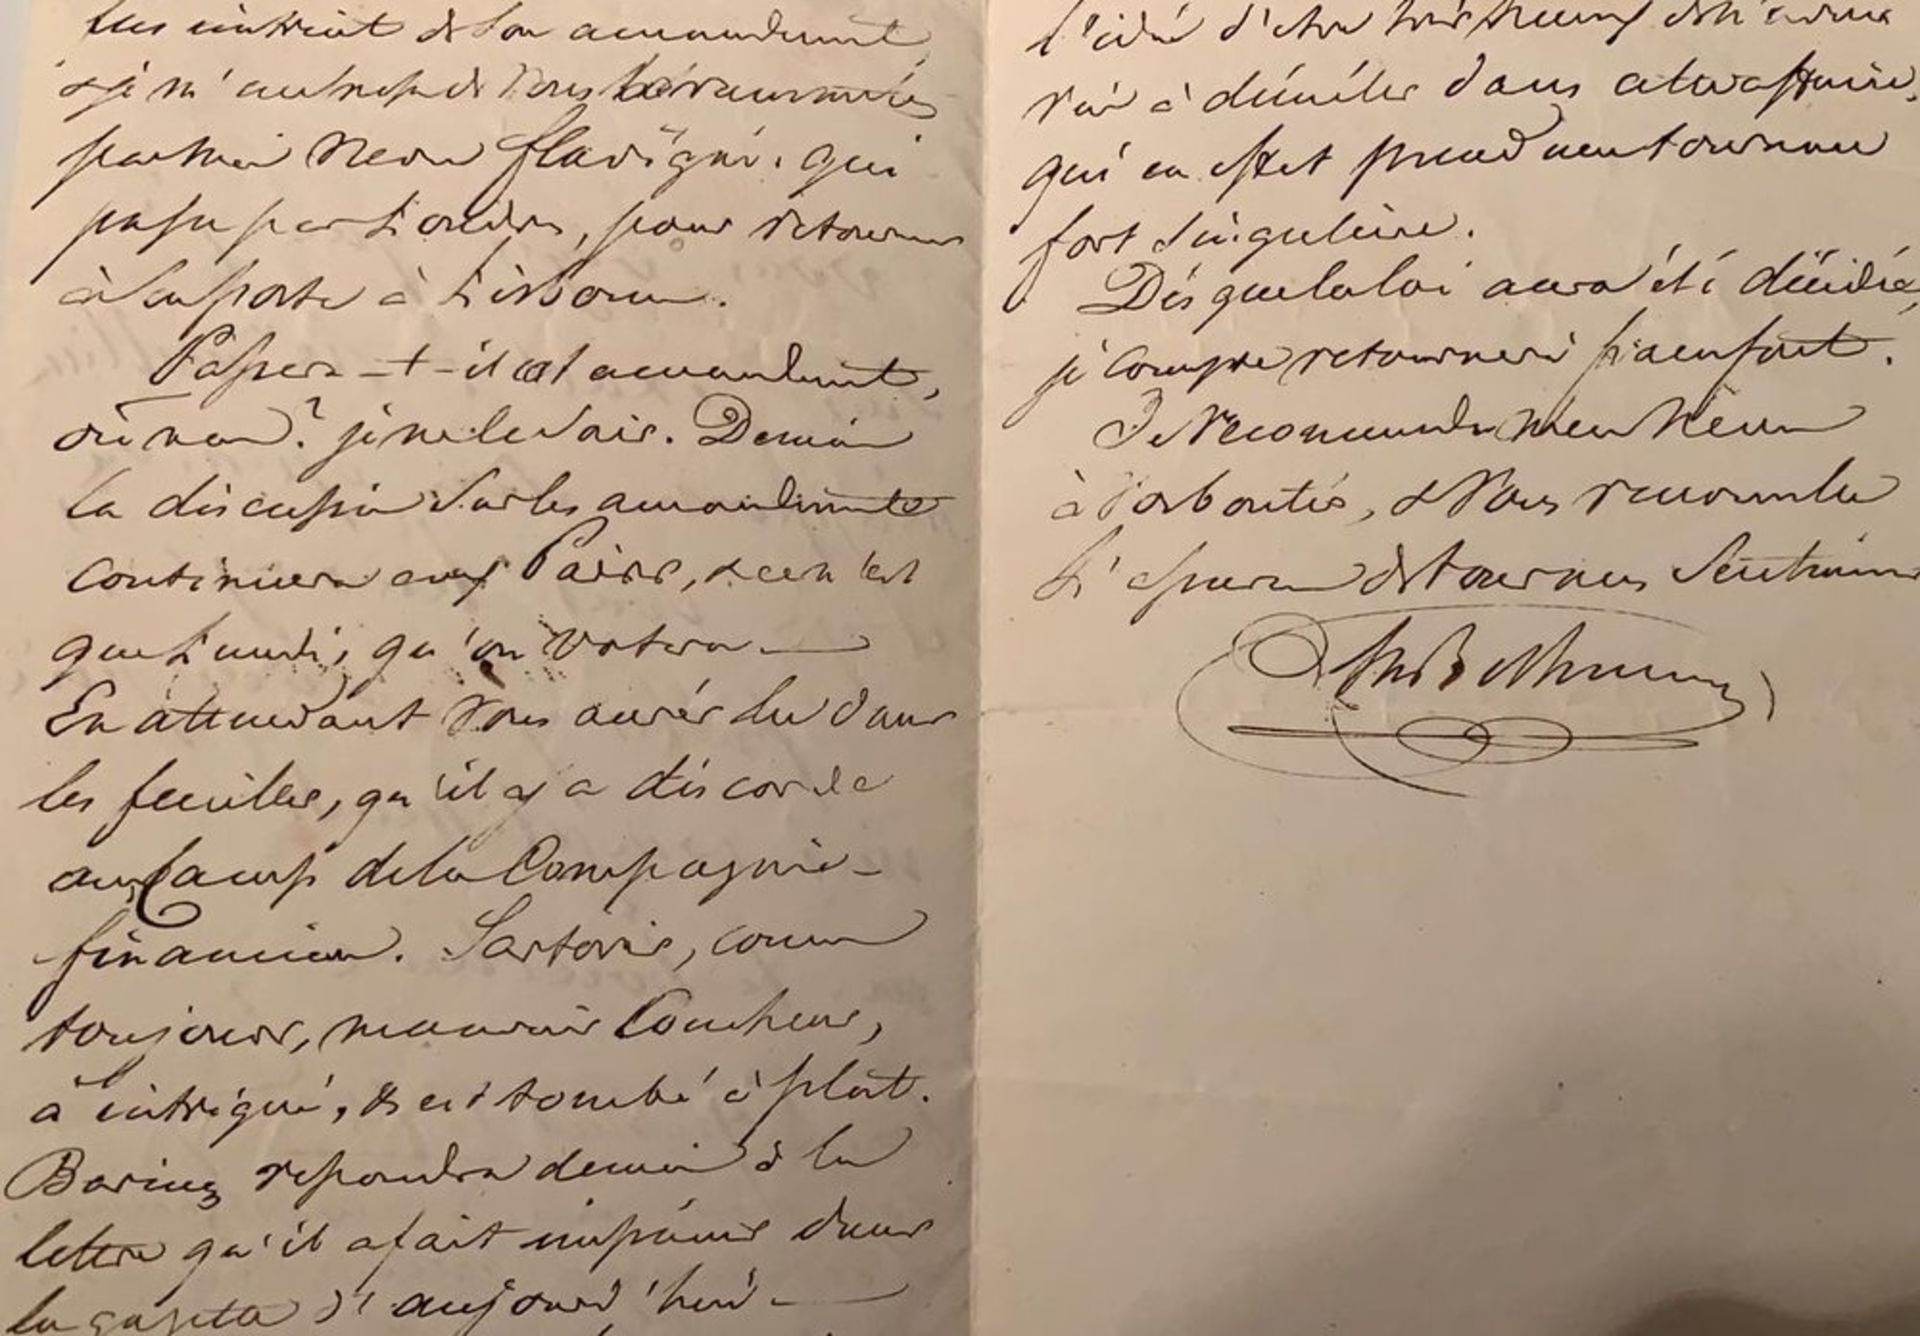 de son amendement,
par mon neveu Flavigni. qui
passe par Londres, pour retourner
à son poste à Lisbonne.
Passera-t-il cet amendement,
où non? je ne le sais. Demain
la discussion sur les amendements
continuera aux Pairs, & ce n'est
que Lundi, qu'on votera —
En attendant Vous aurés lu dans
les feuilles, qu'il y a discorde
au Camp de la Compagnie
financière. Sartoris, comme
toujours, mauvais Coucheur,
à intrigué, & est tombé à plat.
Baring repondra demain à la
lettre qu'il a fait imprimer dans
la gazette d'aujourd'hui —
l'idée d'être très heureux de n'avoir
rien à déméler dans cette affaire,
qui en effet prend une tournure
fort singulière.
Dés que la loi aura été décidée,
je compte retourner à
Je recommande mon Neveu
à Vos bontés, & Vous renouvelle
L' de tous mes Sentimens